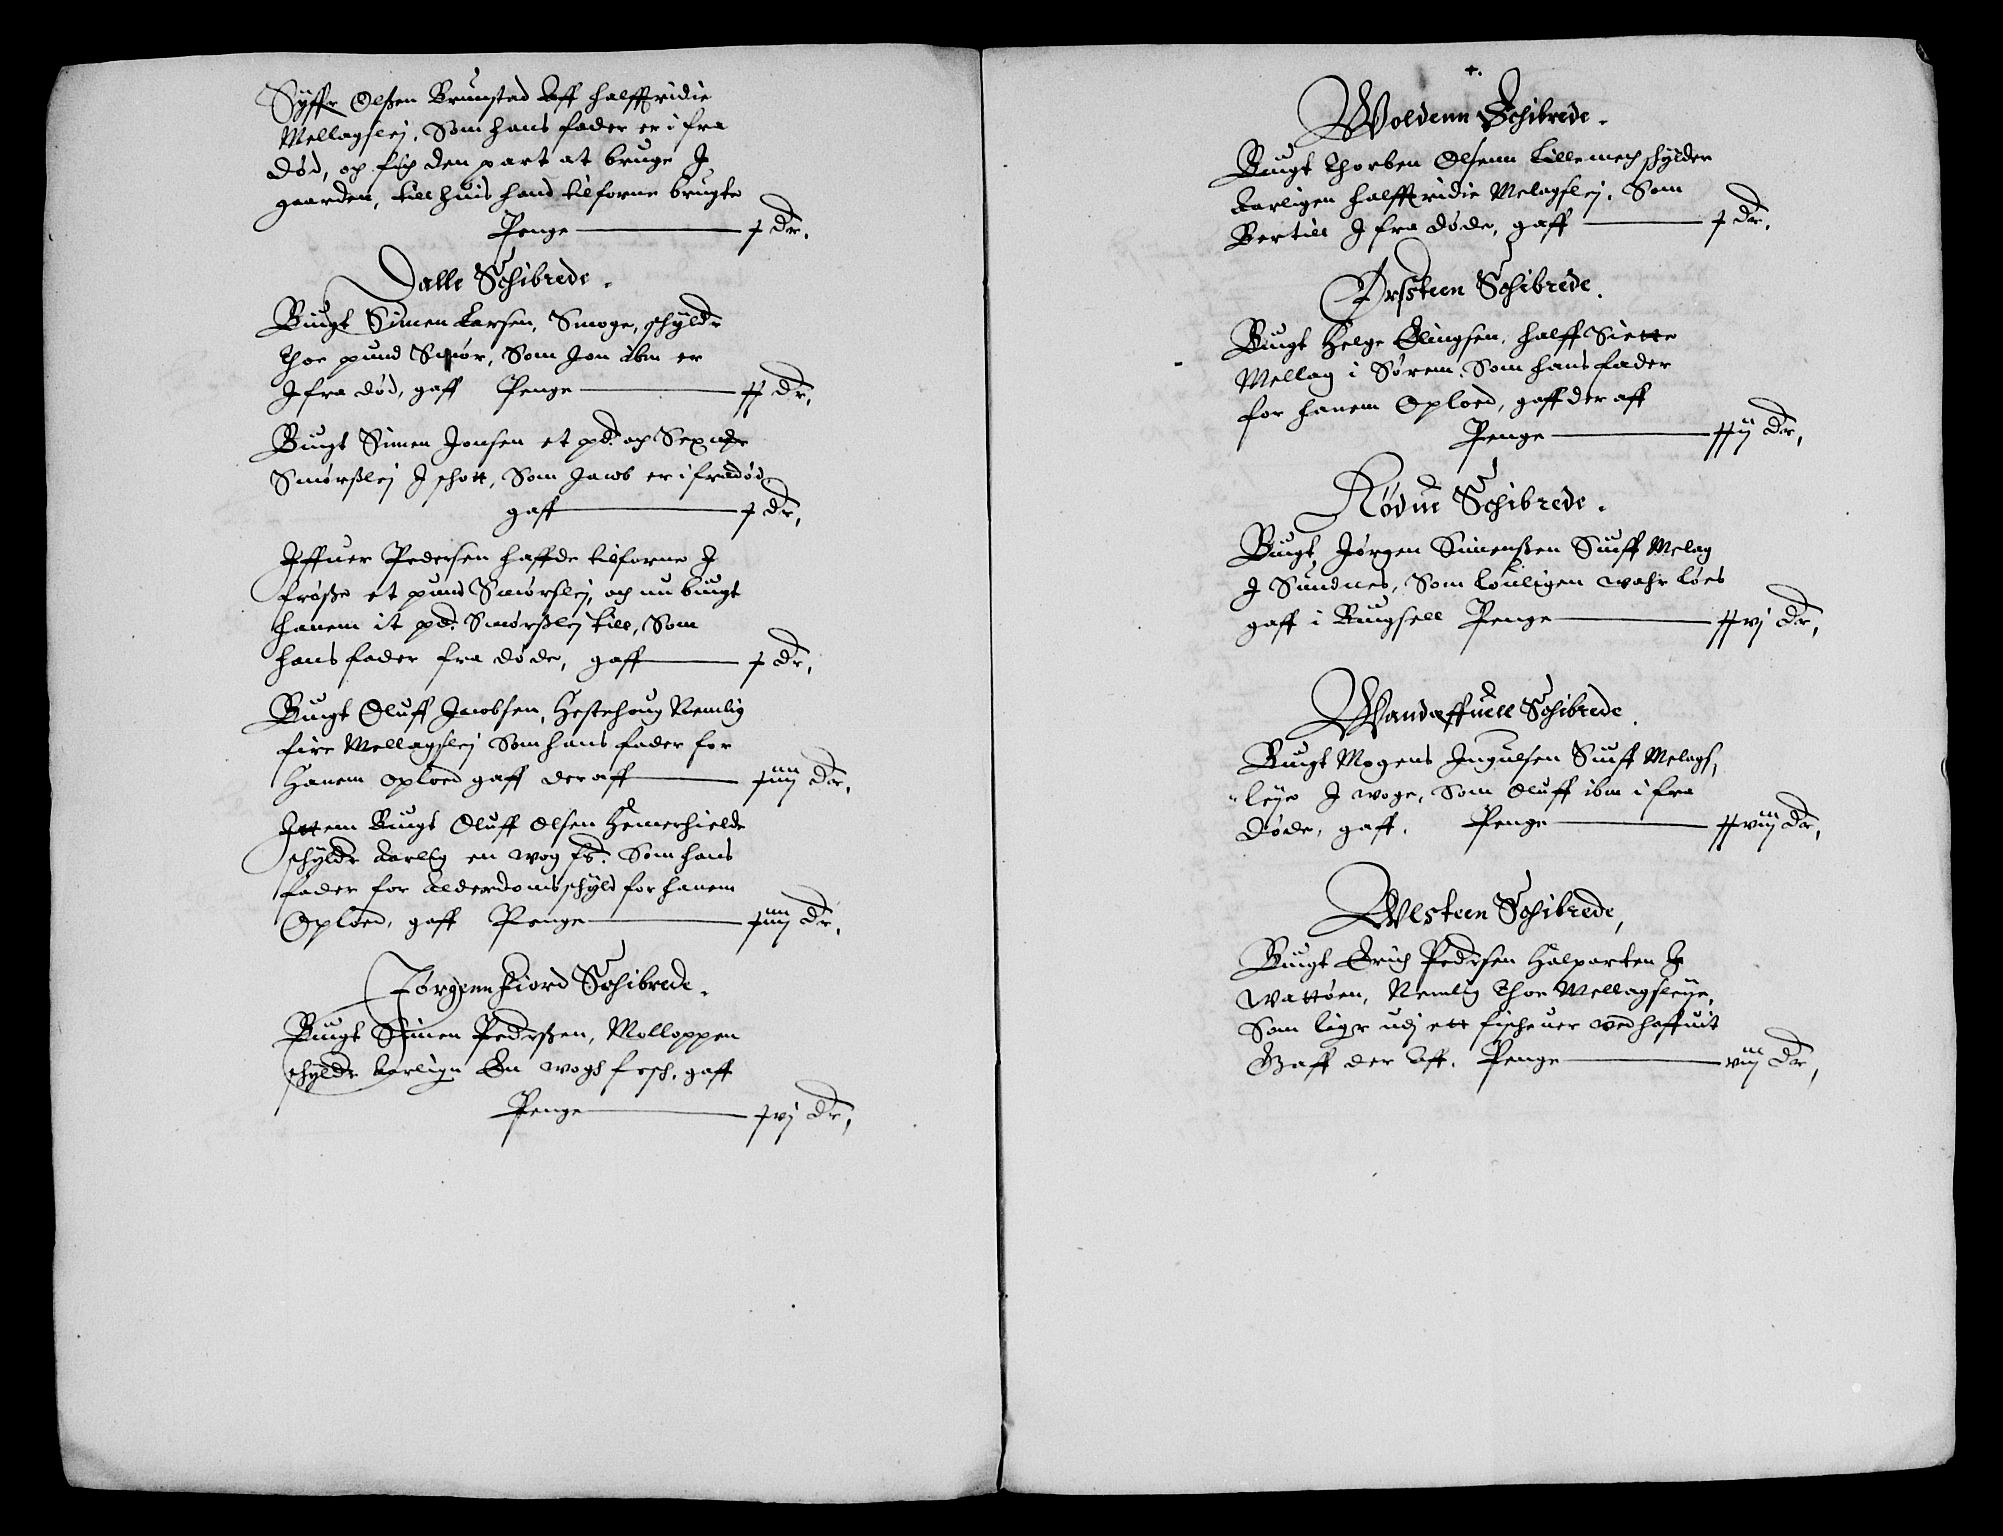 Syffr Olßen Brunstad Aff halfftridie
Mellagslej, Som hans fader er i fra
død, och fich den part at bruge J
gaarden, till huis hand tilforne brugte
Penge — j Dr.
Dalle Schibrede.
Bügt Simen Larsen, Smoge, schyldr
thoe pund Smør, Som Jon ibm er
Jfra død, gaff Penge — ij Dr,
Bügt Simen Jonsen et pd: och Sex mr
Smørßlej J schott, Som Jacob er ifradød
gaff — j Dr,
Jffuer Pedersen haffde tilforne J
frøße et pund Smørslej, och nu bügt
hanem it pd: Smørßlej till, Som
hans fader fra døde, gaff — j Dr,
Bügt Oluff Jacobsen, Hestehoug Nemlig
fire Mellagslej Som hans fader for
Hanem oploed gaff der aff — jiiij Dr,
Jttem Bügt Oluff Olsen Hemerhielde
schyldr Aarlig en wog fs: Som hans
fader for Alderdoms schyld for hanem
Oploed, gaff Penge — jiiij Dr,
Jørgenn fiord Schibrede.
Bügt Simen Pedrßen, Molloppen
schyldr Aarlign En wogh fisch, gaff
Penge — jvj Dr,
Woldenn Schibrede.
Bügt Thorben Olsenn Lillemech schylder
Aarligen halfftridie Melagslej, Som
Bertill J fra døde, gaff — j Dr,
Ørssteen Schibrede.
Bügt Helge Ellingsen, halff Siette
Mellag i Sørem, Som hans fader
for hanem Oploed, gaff der aff
Penge — ijij Dr,
Rødue Schibrede.
Bügt Jørgen Simenßen Siuff Melag
J Sundnes, Som Louligen wahr Løes
gaff i Bugsell Penge — ijvj Dr,
Wandaffuell Schibrede.
Bügt Mogens Jngulsen Siuff Melags,
leye J woge, Som Oluff ibm i fra
Døde, gaff, Penge — ijviij Dr,
Wlsteen Schibrede,
Bügt Erich Pedrsen Halparten J
Wattøen, Nemlig thoe Mellagsleye,
Som ligr udj ett fischeuer ved haffuit
Gaff der Aff, Penge — viij Dr,